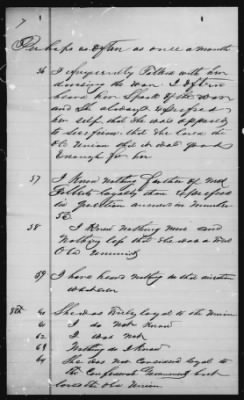 Perhaps as often as once a month
56 I frequently Talked with her
during the war. I often
heard her Speak of the war
and She always expressed
her self that She was opposed
to Secession that She loved the
Old Union that it was good
Enough for her
57 I Know nothing further of Mrs
loyalty than expressed
in question answered in number
56
58 I Know nothing more and
Nothing less that She was a true
Old
59 I have heard nothing in that direction
whatever
60 She was Truly loyal to the Union
61 I do not Know
62 I was not
63 Nothing do I Know
64 She was not Considered loyal to
the Confederate but
loved the Old Union